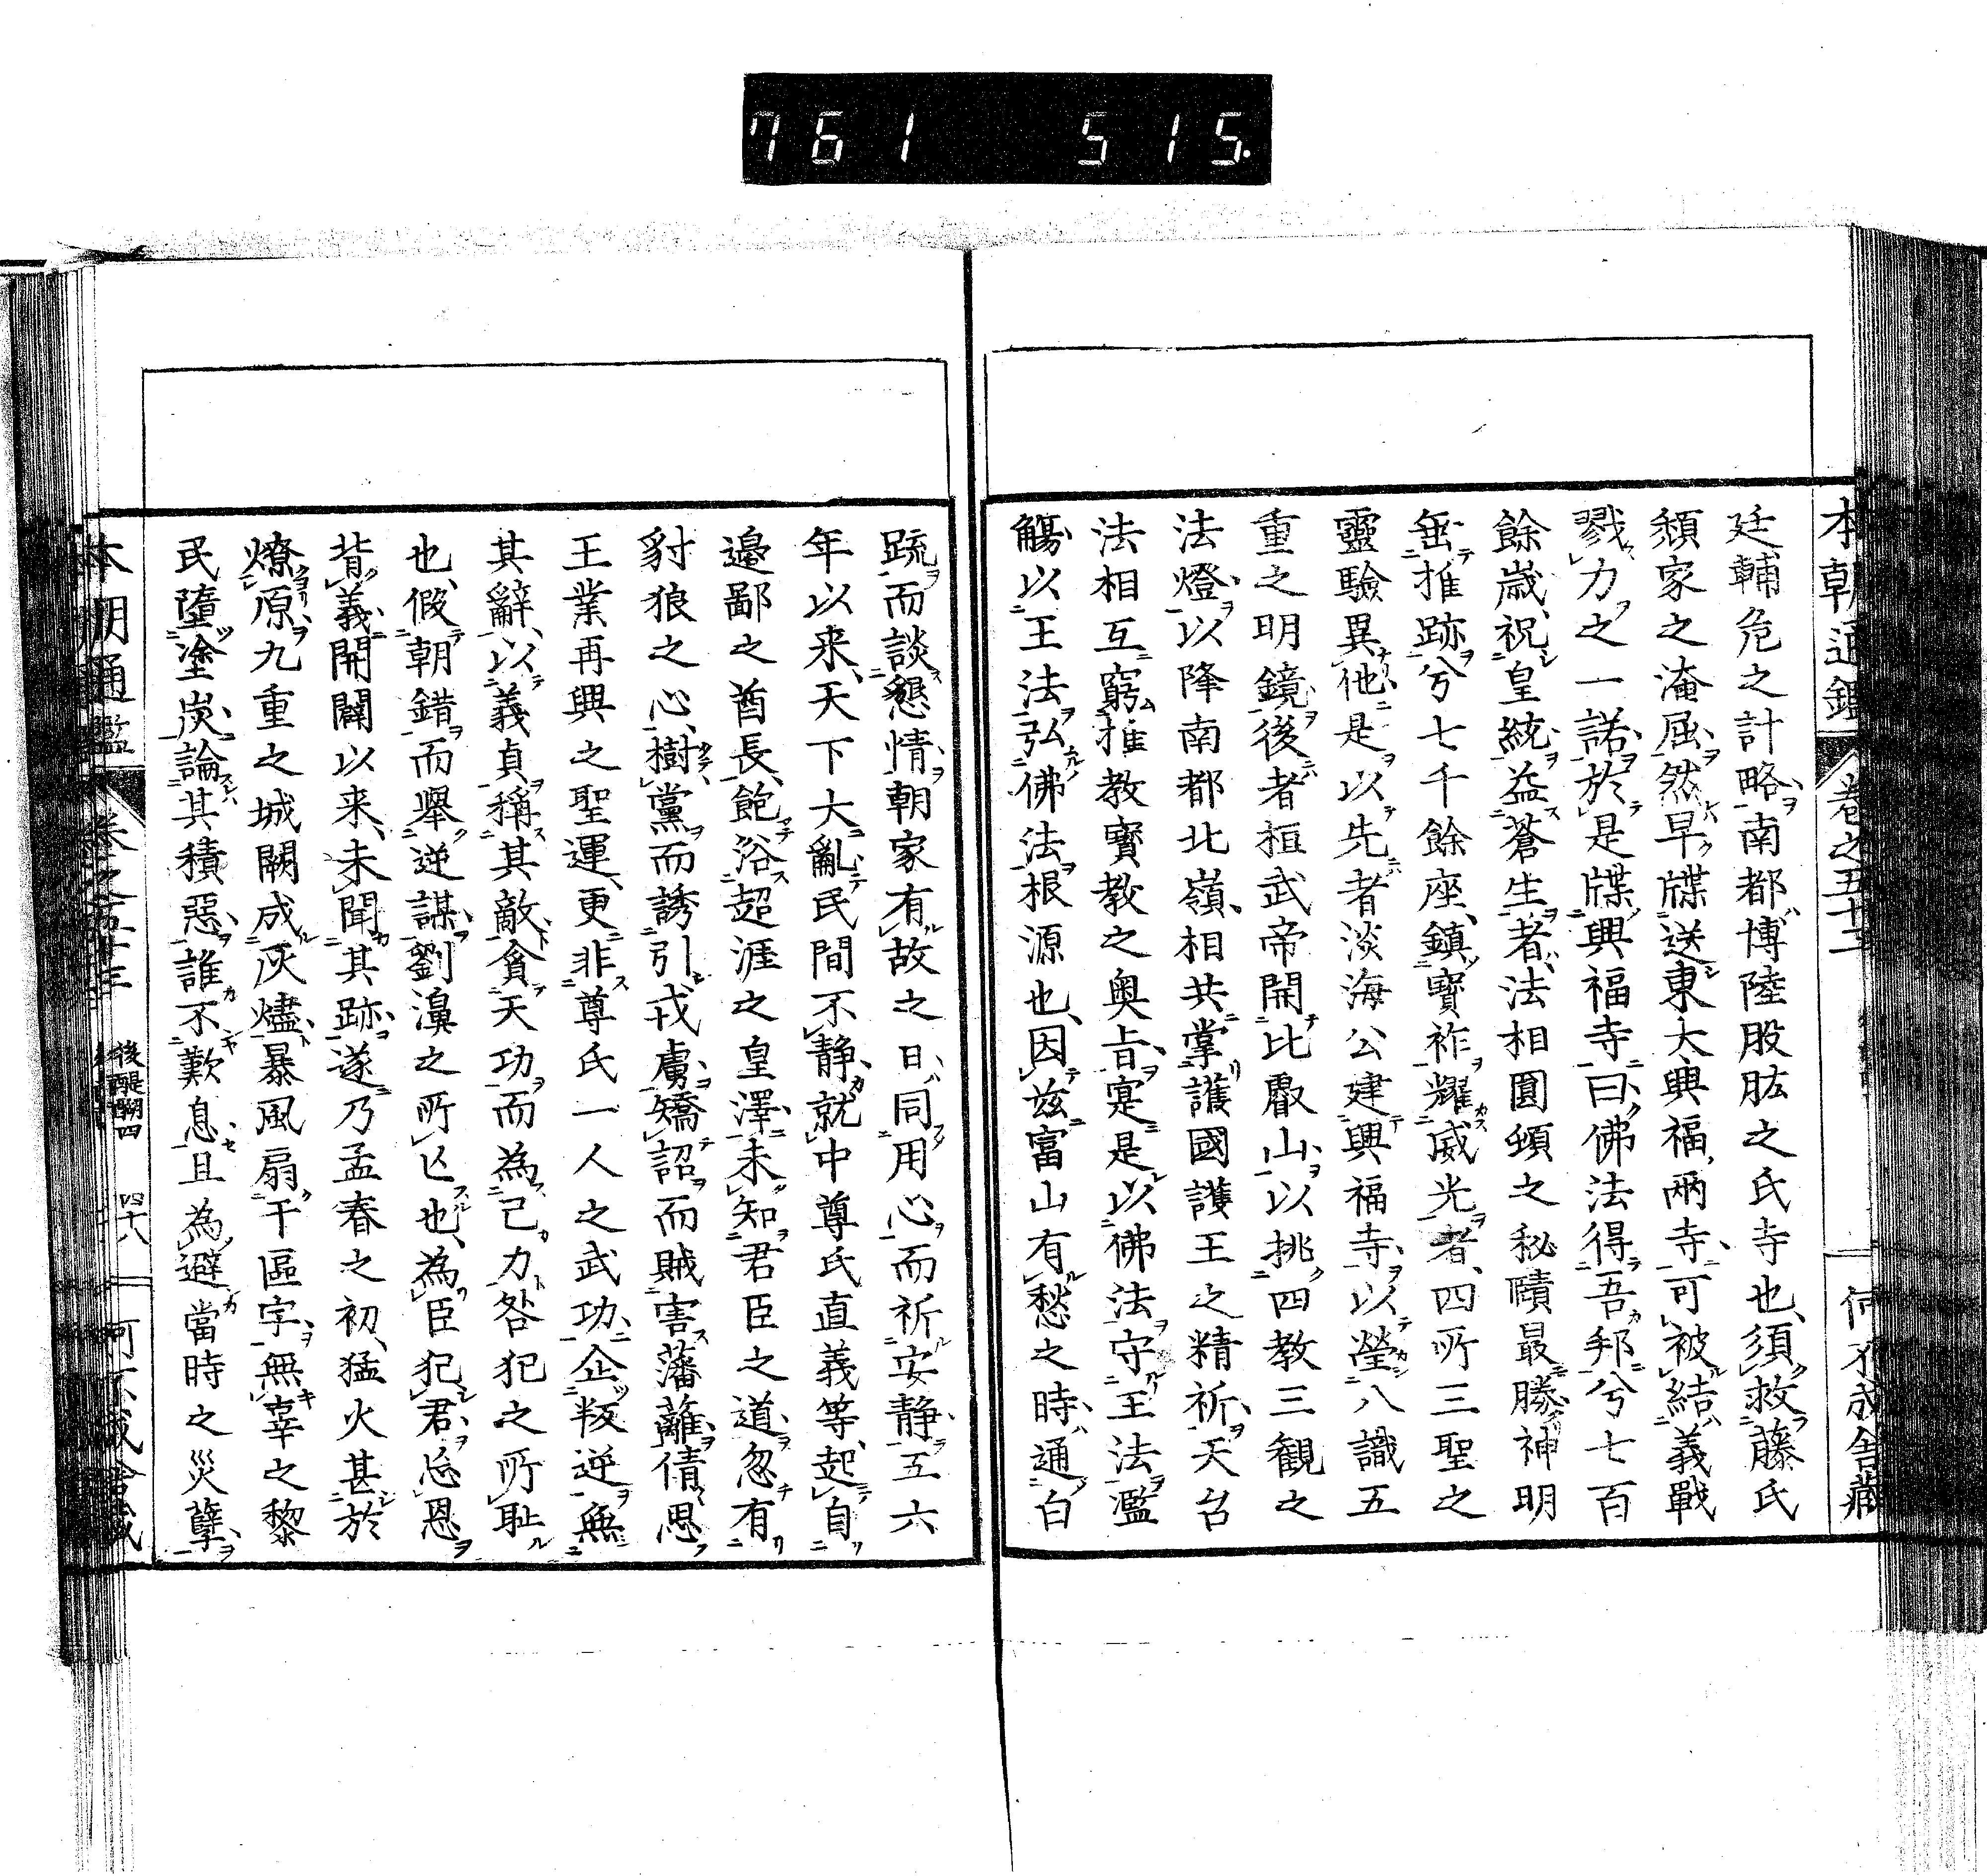 761 515.
本朝通鑑 卷之五十三 何不成舎藏
廷輔危之計略南都博陸股肱之氏寺也須救藤氏
頽家之淹屈然早牒送東大興福兩寺可被結義戰
戮力之一諾於是牒興福寺曰佛法得吾邦兮七百
餘歳祝皇統益蒼生者法相圓頓之秘賾最勝神明
垂推跡兮七千餘座鎮寶祚耀威光者四所三聖之
靈驗異他是以先者淡海公建興福寺以瑩八識五
重之明鏡後者桓武帝開比叡山以挑四教三観之
法燈以降南都北嶺相共掌護國護王之精祈天台
法相互窮推教實教之奥旨寔是以佛法守王法濫
觴以王法弘佛法根源也因茲當山有愁之時通白
疏而談懇情朝家有故之日同用心而祈安靜五六
年以来天下大亂民間不靜就中尊氏直義等起自
邉鄙之酋長飽浴超涯之皇澤未知君臣之道忽有
豺狼之心樹黨而誘引戎虜矯詔而賊害藩蘺倩思
王業再興之聖運更非尊氏一人之武功企叛逆無
其辭以義貞稱其敵貪天功而為己力咎犯之所恥
也假朝錯而舉逆謀劉濞之所亾也為臣犯君忘恩
背義開闢以来未聞其跡遂乃孟春之初猛火甚於
燎原九重之城闕成灰燼暴風扇于區宇無辜之黎
民墮塗炭論其積惡誰不歎息且為避當時之災孽
本朝通鑑 卷之五十三 後醍醐四 四十八 何不成舎藏